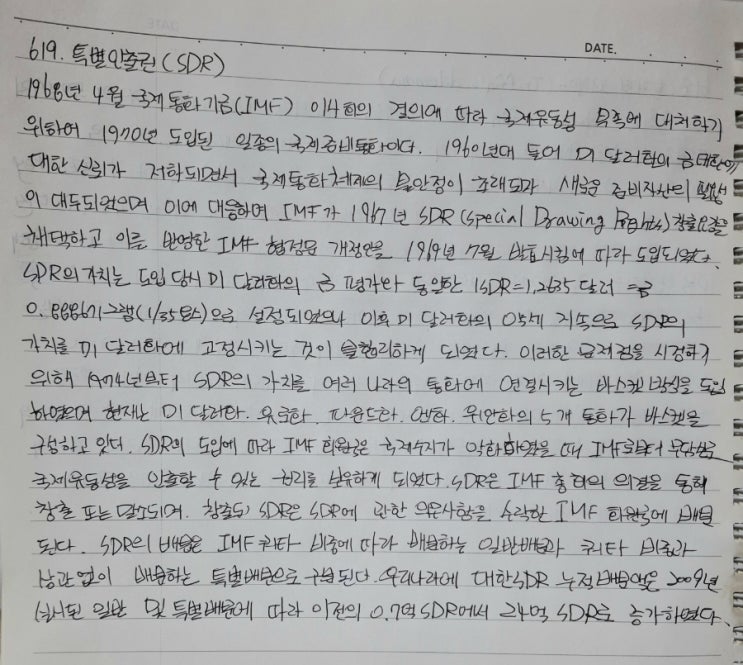 DATE.
619. 특별인출권(SDR)
1968년 4월 국제통화기금(IMF) 이사회의 결의에 따라 국제유동성 부족에 대처하기
위하여 1970년 도입된 일종의 국제준비통화이다. 1960년대 들어 미 달러화의 금태환에
대한 신뢰가 저하되면서 국제통화체제의 불안정이 초래되자 새로운 준비자산의 필요성
이 대두되었으며 이에 대응하여 IMF가 1967년 SDR(special Drawing Rights) 창출요강을
채택하고 이를 반영한 IMF 협정문 개정안을 1969년 7월 발효시킴에 따라 도입되었다.
SDR의 가치는 도입 당시 미 달러화의 금 평가와 동일한 1SDR=1,2635달러 =금
0.88867그램(1/35온스)으로 설정되었으나 이후 미 달러화의 약세 지속으로 SDR의
가치를 미 달러화에 고정시키는 것이 불합리하게 되었다. 이러한 문제점을 시정하기
위해 1974년부터 SDR의 가치를 여러 나라의 통화에 연결시키는 바스켓 방식을 도입
하였으며 현재는 미 달러화. 유로화. 파운드화. 엔화. 위안화의 5개 통화가 바스켓을
구성하고 있다. SDR의 도입에 따라 IMF 회원국은 국제수지가 악화하였을 때 IMF로부터 무담보로
국제유동성을 인출할 수 있는 권리를 보유하게 되었다. SDR은 IMF 총회의 의결을 통해
창출 또는 말소되며. 창출된 SDR은 SDR에 관한 의무사항을 수락한 IMF 회원국에 배분
된다. SDR의 배분은 IMF 쿼타 비중에 따라 배분하는 일반배분과 쿼타 비중과
상관없이 배분하는 특별배분으로 구분된다. 우리나라에 대한 SDR 누적배분액은 2009년
실시된 일반 및 특별배분에 따라 이전의 0.7억 SDR에서 24억 SDR로 증가하였다.